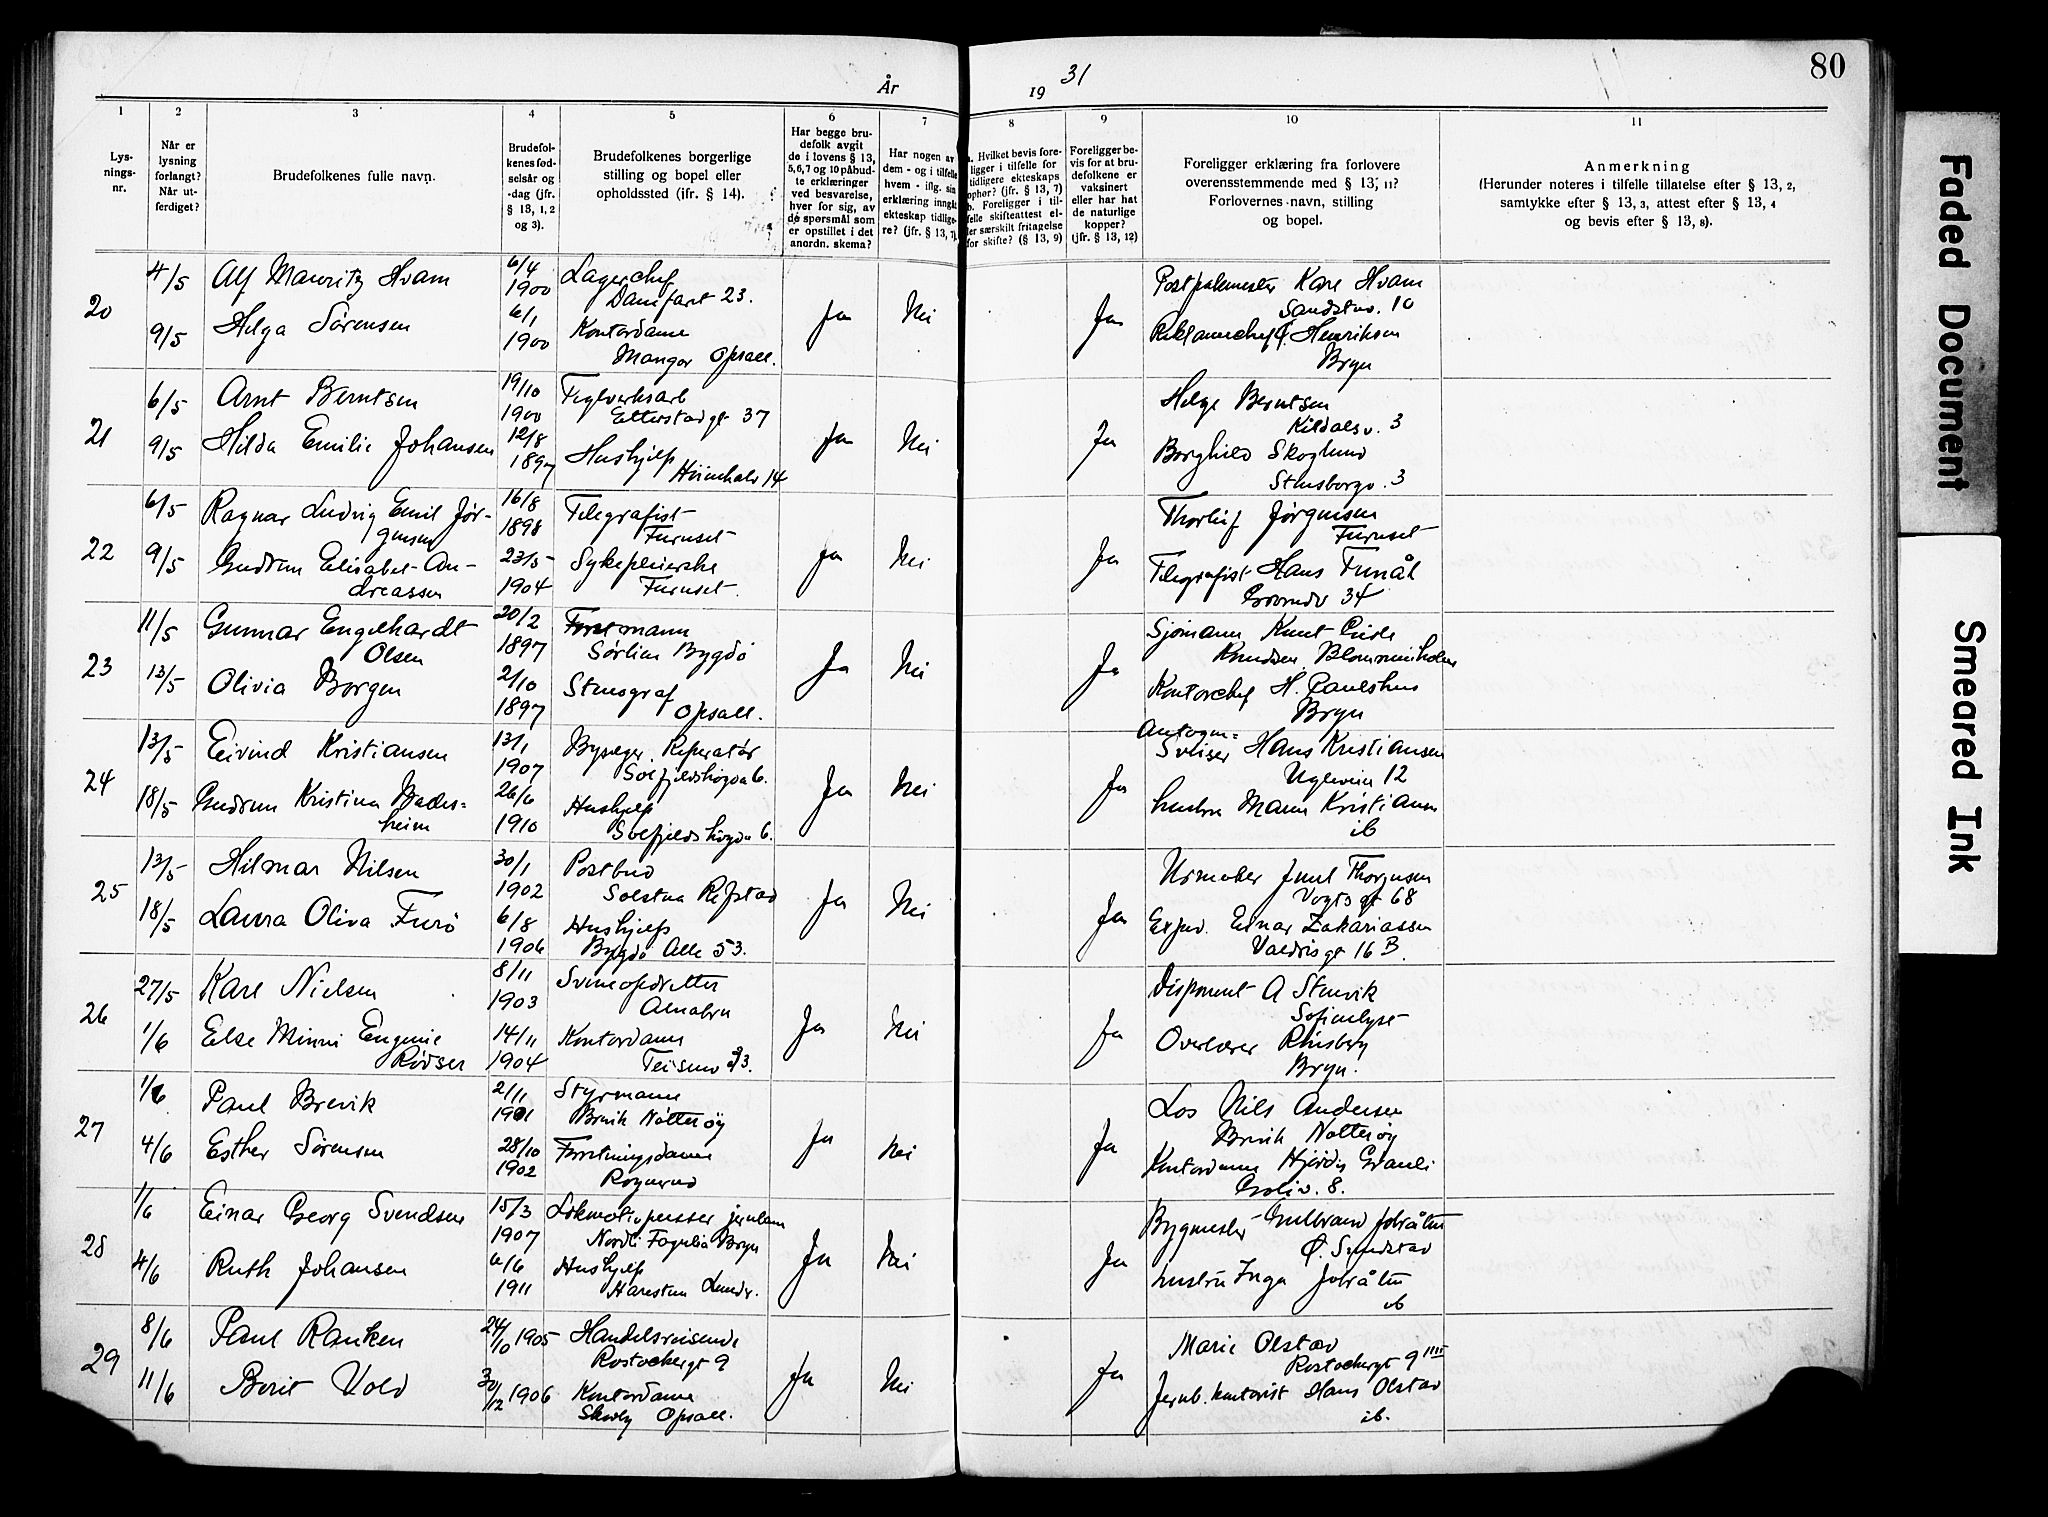 80
År 19 31
1 2 3 4 5 6 7 8 9 10 11
Lys-
nings-
nr.
Når er
lysning
forlangt?
Når ut-
ferdiget?
Brudefolkenes fulle navn.
Brudefol-
kenes fød-
selsår og
-dag (jfr.
§ 13, 1, 2
og 3).
Brudefolkenes borgerlige
stilling og bopel eller
opholdssted (ifr. § 14).
Har begge bru-
defolk avgit
de i lovens § 13,
5, 6, 7 og 10 påbud-
te erklæringer
ved besvarelse,
hver for sig, av
de spørsmål som
er opstillet i det
anordn. skema?
Har nogen av
dem - og i tilfelle
hvem - iflg. sin
erklæring inngåt
ekteskap tidlige-
re? (jfr. § 13, 7).
a. Hvilket bevis fore-
ligger i tilfelle for
tidligere ekteskaps
ophør? (jfr. § 13, 7)
b. Foreligger i til-
felle skifteattest el-
ler særskilt fritagelse
for skifte? (§ 13, 9)
Foreligger be-
vis for at bru-
defolkene er
vaksinert
eller har hat
de naturlige
kopper?
(jfr. § 13, 12)
Foreligger erklæring fra forlovere
overensstemmende med § 13, 11?
Forlovernes navn, stilling
og bopel.
Anmerkning
(Herunder noteres i tilfelle tillatelse efter § 13, 2,
samtykke efter § 13, 3, attest efter § 13, 4
og bevis efter § 13, 8).
20
4/5 Alf Mauritz Hvam 6/4 1900 Lagerchef
Danifart 23.
9/5 Helga Sørensen 6/1 1900 Kontordame
Manger Opsall.
Ja Nei Ja
Kare Hvam
10
Reklamechef Henriksen
Bryn
21
6/5 Arnt Berntsen 19/10 1900 Teglverksarb
Etterstadgt 37
9/5 Hilda Emilie Johansen 12/8 1897 Hushjelp
14
Ja Nei Ja
Helge Berntsen
Kildalsv. 3
Borghild Skoglund
Stensborgv. 3
22
6/5 Ragnar Ludvig Emil Jør-
gensen 16/8 1898 Telegrafist
Furuset
9/5 Gudrun Elisabet An-
dreassen 23/5 1904 Sykepleierske
Furuset.
Ja Nei Ja
Thorleif Jørgensen
Furuset
Telegrafist Hans
34
23
11/5 Gunnar Engelhardt
Olsen 20/2 1897 Forstmann
Sørlien Bygdø
13/5 Olivia Borgen 2/10 1897 Stenograf
Opsall.
Ja Nei Ja
Sjømann Knut
Knudsen Blommenholm
Kontorchef H. Paulshus
Bryn
24
13/5 Eivind Kristiansen 13/1 1907 Reperatør
Solfjeldshøgda 6.
18/5 Gudrun Kristina
heim 26/6 1910 Hushjelp
Solfjeldshøgda 6.
Ja Nei Ja
Autogen-
Sveiser Hans Kristiansen
Ugleveien 12
hustru Kristiansen
ib
25
13/5 Hilmar Nilsen 30/1 1902 Postbud
Solstua Refstad
18/5 Laura Oliva Furø 6/8 1906 Hushjelp
Bygdø Alle 53.
Ja Nei Ja
Urmaker Juul Thorgersen
Vogtsgt 68
Exped. Einar Zakariassen
Valdrisgt 16 B.
26
27/5 Karl Nielsen 8/11 1903 Svineopdretter
Alnabru
1/6 Else Minni Eugenie
Rødser 14/11 1904 Kontordame
Teisenv 33.
Ja Nei Ja
Disponent A Stenvik
Sofienlyst
Overlærer Rinsberg
Bryn.
27
1/6 Paul Brevik 2/11 1901 Styrmann
Brevik Nøtterøy
4/6 Esther Sørensen 28/10 1902 Forretningsdame
Rognerud
Ja Nei Ja
Los Nils Andersen
Brevik Nøtterøy
Kontordame Hjørdis Granli
8.
28
1/6 Einar Georg Svendsen 15/3 1907 Lokmotivpusser jernbane
Nordli Faguglia Bryn
4/6 Ruth Johansen 6/6 1911 Hushjelp
Harestua
Ja Nei Ja
Bygmester Gulbrand
Ø.
hustru Inga
ib
29
8/6 Paul Ranken 24/10 1905 Handelsreisende
Rostockergt 9
11/6 Borit Vold 30/12 1906 Kontordame
Opsall.
Ja Nei Ja
Marie Olstad
Rostockergt 9 IIII
Jernb. kontorist Hans Olstad
ib.
Faded Document
Smeared Ink